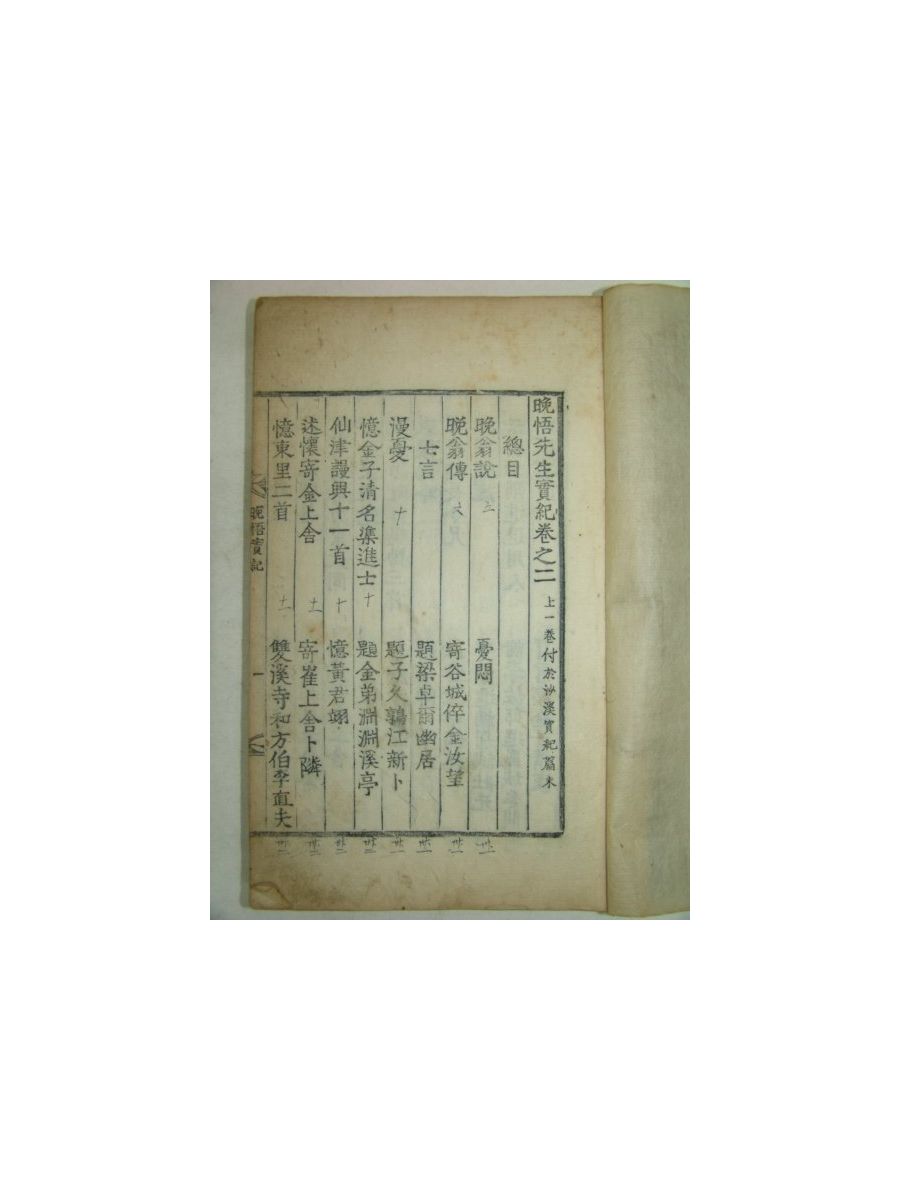 晩悟先生實紀卷之二 上一卷付於沙溪實紀篇末
總目
晩翁說 五 憂悶 卅一
晩翁傳 六 寄谷城倅金汝望 卅一
七言 題梁卓爾幽居 卅一
漫憂 十 題子久鶉江新卜 卅一
憶金子清名渠進士 十 題金弟淵淵溪亭 卅二
仙津謾興十一首 十 憶黃君翊 卅二
述懷寄金上舍 十一 寄崔上舍卜隣 卅二
憶東里二首 十一 雙溪寺和方伯李直夫 卅二
晩悟實記 一